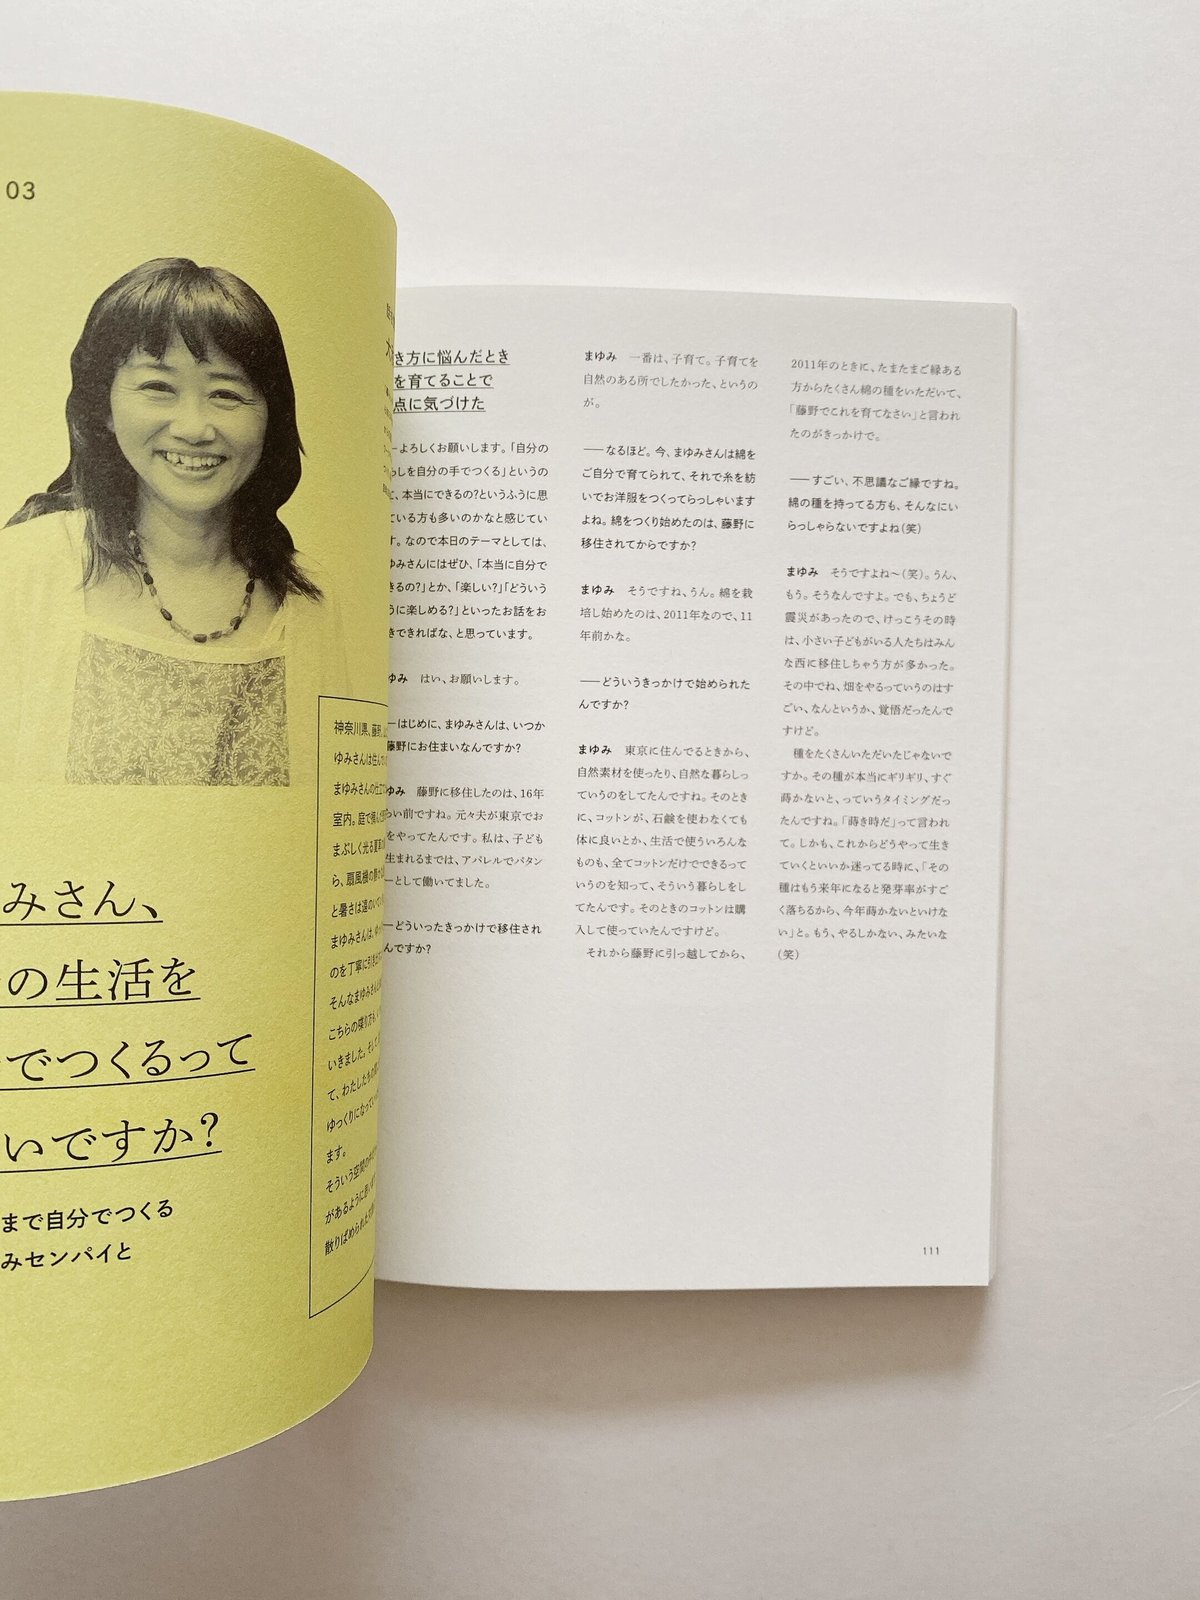 03
みさん、
の生活を
でつくるって
いですか?
まで自分でつくる
みセンパイと
神奈川県、藤野。
ゆみさんは住んで
まゆみさんの仕立
室内。庭で摘んだ
まぶしく光る夏草
ら、扇風機の
と暑さは遠のいて
まゆみさんは、ゆ
のを丁寧に引き
そんなまゆみさん
こちらの喋り方も
いきました。そして
て、わたしたちの
ゆっくりになってい
ます。
そういう空間の
があるように思い
散りばめられた
き方に悩んだとき
を育てることで
点に気づけた
―よろしくお願いします。「自分の
らしを自分の手でつくる」というの
に、本当にできるの?というふうに思
ている方も多いのかなと感じてい
す。なので本日のテーマとしては、
ゆみさんにはぜひ、「本当に自分で
きるの?」とか、「楽しい?」「どういう
うに楽しめる?」といったお話をお
きできればな、と思っています。
ゆみ　はい、お願いします。
―はじめに、まゆみさんは、いつか
藤野にお住まいなんですか?
ゆみ　藤野に移住したのは、16年
らい前ですね。元々夫が東京でお
をやってたんです。私は、子ども
生まれるまでは、アパレルでパタン
ーとして働いてました。
―どういったきっかけで移住され
んですか?
まゆみ　一番は、子育て。子育てを
自然のある所でしたかった、というの
が。
――なるほど。今、まゆみさんは綿を
ご自分で育てられて、それで糸を紡
いでお洋服をつくってらっしゃいます
よね。綿をつくり始めたのは、藤野に
移住されてからですか?
まゆみ　そうですね、うん。綿を栽
培し始めたのは、2011年なので、11
年前かな。
――どういうきっかけで始められた
んですか?
まゆみ　東京に住んでるときから、
自然素材を使ったり、自然な暮らしっ
ていうのをしてたんですね。そのとき
に、コットンが、石鹸を使わなくても
体に良いとか、生活で使ういろんな
ものも、全てコットンだけでできるって
いうのを知って、そういう暮らしをし
てたんです。そのときのコットンは購
入して使っていたんですけど。
　それから藤野に引っ越してから、
2011年のときに、たまたまご縁ある
方からたくさん綿の種をいただいて、
「藤野でこれを育てなさい」と言われ
たのがきっかけで。
――すごい、不思議なご縁ですね。
綿の種を持ってる方も、そんなにい
らっしゃらないですよね(笑)
まゆみ　そうですよね〜(笑)。うん、
もう。そうなんですよ。でも、ちょうど
震災があったので、けっこうその時
は、小さい子どもがいる人たちはみん
な西に移住しちゃう方が多かった。
その中でね、畑をやるっていうのはす
ごい、なんというか、覚悟だったんで
すけど。
　種をたくさんいただいたじゃないで
すか。その種が本当にギリギリ、すぐ
蒔かないと、っていうタイミングだっ
たんですね。「蒔き時だ」って言われ
て。しかも、これからどうやって生き
ていくといいか迷ってる時に、「その
種はもう来年になると発芽率がすご
く落ちるから、今年蒔かないといけな
い」と。もう、やるしかない、みたいな
(笑)
111